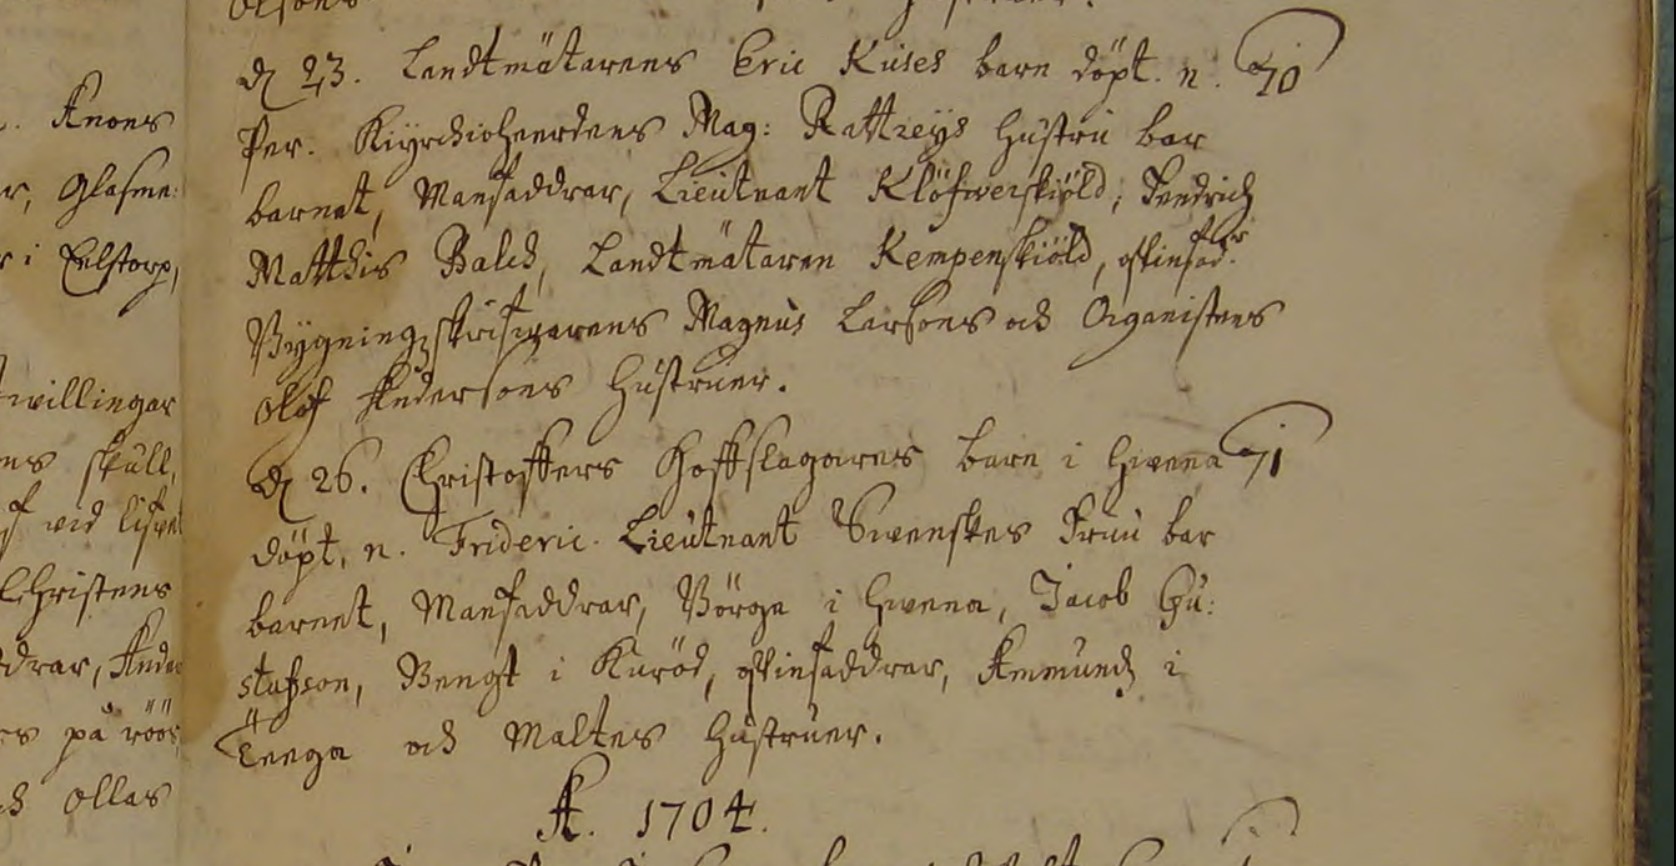 Olsons
d 23. Landtmätarens Eric Kuses barn döpt. n. 70
Per. Kiyrckioheerdens Mag: Rattreijs hustru bar
barnet, Manfaddrar, Lieutnant Klöfwerskiöld, Fendrich
Matthis Balck, Landtmätaren Kempenskiöld, qwinfad:r
Bygningzskrifwarens Magnus Larsons och Organistens
Olof Andersons hustruer.
d 26. Christoffers Hofslagares barn i Hwena 71
döpt. n. Frideric. Lieutnant Swenskes Fruu bar
barnet, Manfaddrar, Börge i Hwena, Jacob Gu:
stafson, Bengt i Kuröd, qwinfaddrar, Ammunds i
och Maltes hustruer.
A. 1704.
Knones
r, Glasme:
r i Eelstorp,
twillingar
ens skull,
wid lifwet
Christens
ddrar, Ander
es på röös
ck Ollas